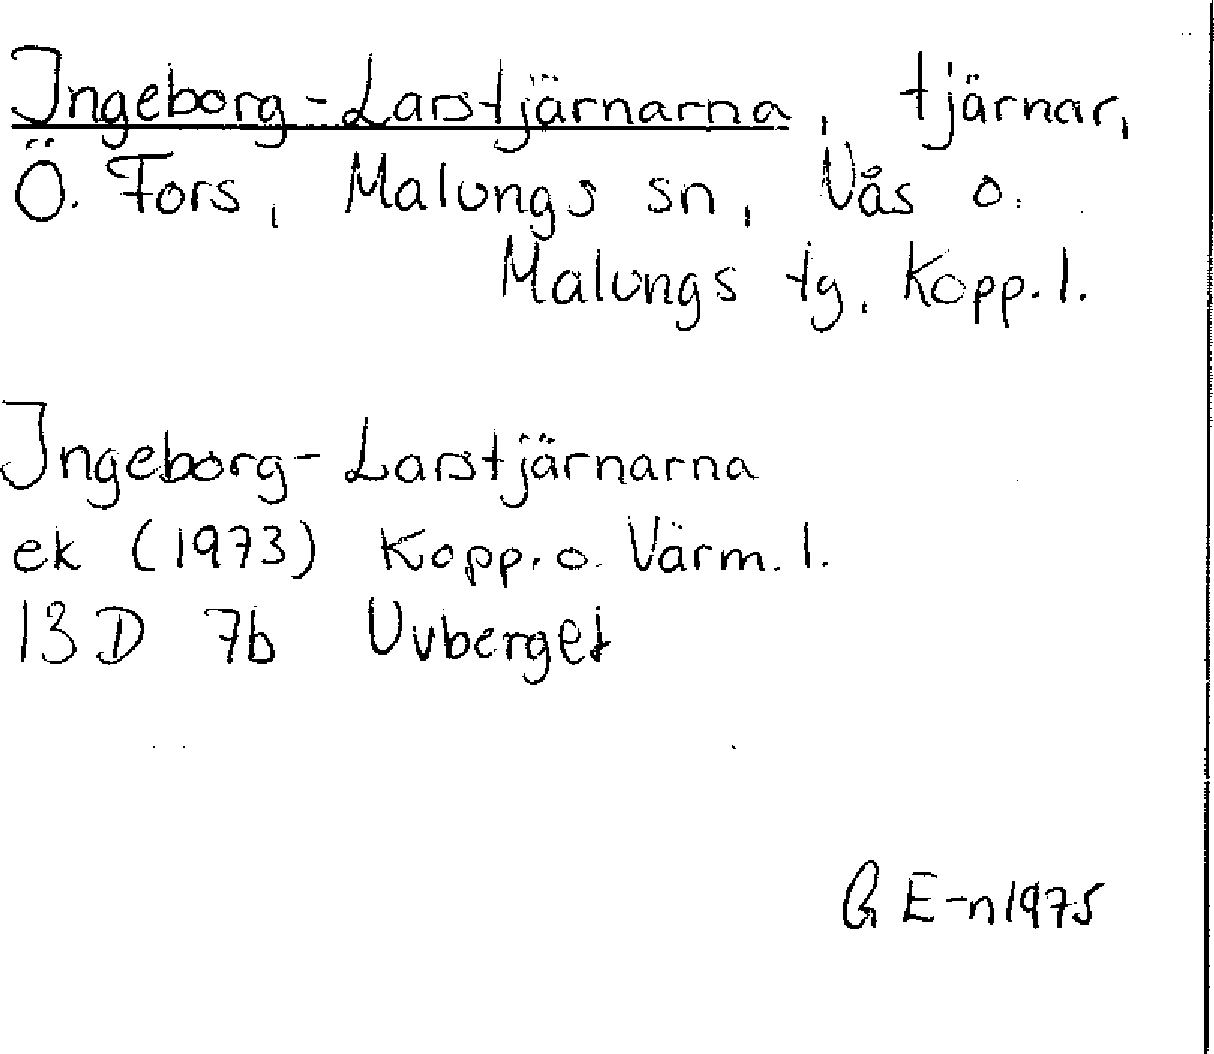 Ingeborg-Larstjärnarna, tjärnar,
Ö. Fors, Malungs sn, Nås o.
Malungs tg. Kopp. l.
Ingeborg-Larstjärnarna
ek (1973) Kopp. o. Värm. l.
13D 7b Uvberget
G E-n 1975